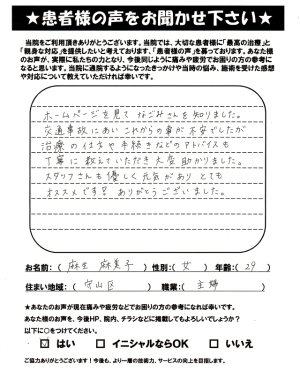 ★患者様の声をお聞かせ下さい★
当院をご利用頂きありがとうございます。当院では、大切な患者様に「最高の治療」と
「親身な対応」を提供したいと考えております。「患者様の声」を募っております。あなた様
のお声が、実際に私たちの力となり、今後同じように痛みや疲労でお困りの方の参考に
なると思います。当院に通院するようになったきっかけや当時の悩み、施術を受けた感想
や対応について教えていただければ幸いです。
ホームページを見て なごみさんを知りました。
交通事故にあい これからの事が不安でしたが
治療の仕方や手続きなどのアドバイスも
丁寧に教えていただき大変助かりました。
スタッフさんも優しく元気があり とても
オススメです！ ありがとうございました。
お名前:( 麻生 麻美子 ) 性別:( 女 ) 年齢:( 29 )
住まい地域:( 守山区 ) 職業:( 主婦 )
★あなたのお声が現在痛みや疲労などでお困りの方の参考になれば幸いです。
あなた様のお声を、今後HP、院内、チラシなどに掲載してもよろしいでしょうか?
以下に○をつけてください。
はい イニシャルならOK いいえ
ご協力ありがとうございます!今後も、より一層の技術力、サービスの向上を目指します。